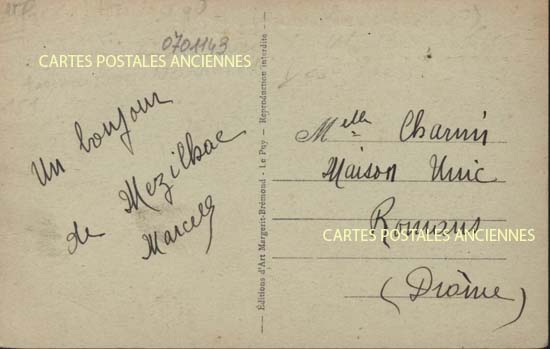 0701143
CARTES POSTALES ANCIENNES
Un bonjour
de Mezilhac
Marcelle
Editions d'Art Margerit-Brémond - Le Puy - Reproduction interdite
Melle Charvin
Maison Unic
Romans
CARTES POSTALES ANCIENNES
(Drôme)